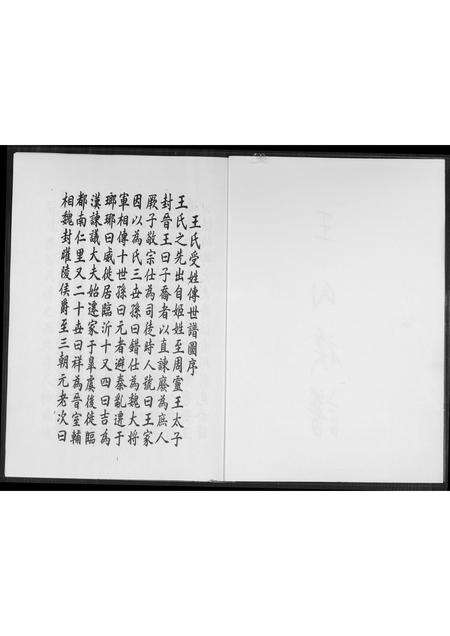 王氏受姓傳世譜圖序
王氏之先出自姬姓至周靈王太子
封晉王曰子喬者以直諫廢為庶人
厥子敬宗仕為司徒時人號曰王家
因以為氏三世孫曰錯仕為魏大將
軍相傳十世孫曰元者避秦亂遷于
瑯琊曰威徙居臨沂十又四曰吉為
漢諫議大夫始遷家于皐虞後徙臨
都南仁里又二十世曰祥為晉室輔
相魏封雎陵侯爵至三朝元老次曰